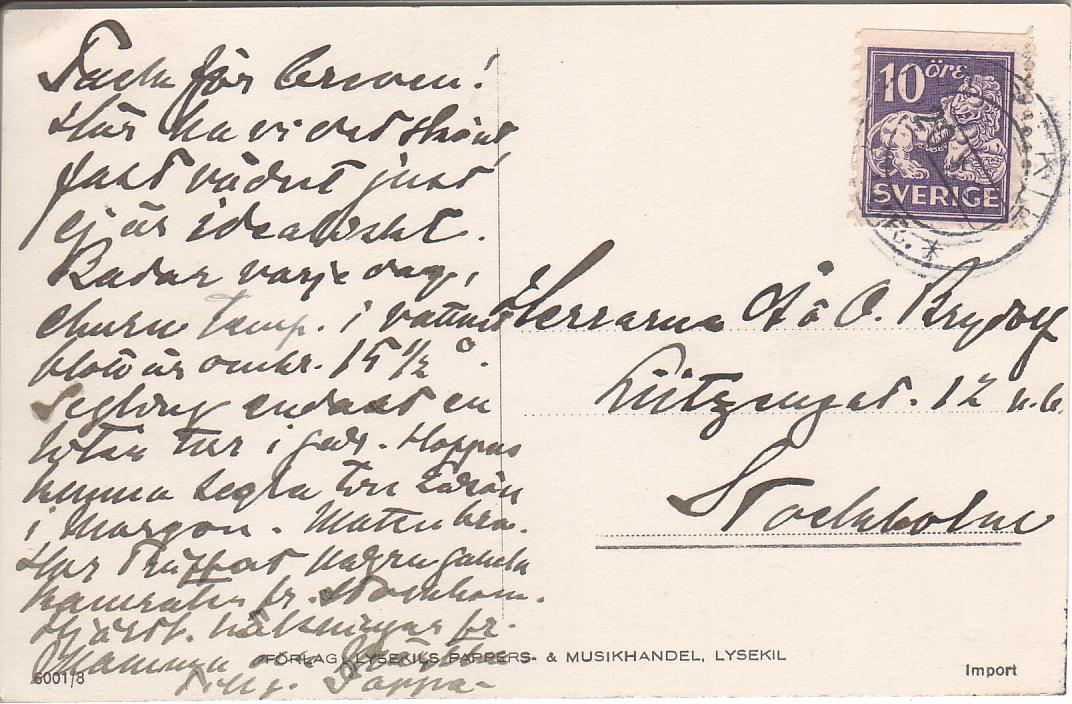 Tack för breven!
Här ha vi det skönt
fast vädret just
ej är idealiskt.
Badar varje dag,
ehuru temp. i vattnet
blott är omkr. 15 1/2 °.
Segling endast en
liten tur i går. Hoppas
kunna segla
i morgon. Maten bra.
Har träffat några gamla
kamrater fr. Stockholm.
Hjärtl. hälsningar fr.
Mamma och
Pappa
10 öre
SVERIGE
29
Herrarna A & O. Brydolf
Lützengat. 12
Stockholm
FÖRLAG LYSEKILS PAPPERS- & MUSIKHANDEL, LYSEKIL
6001/8
Import